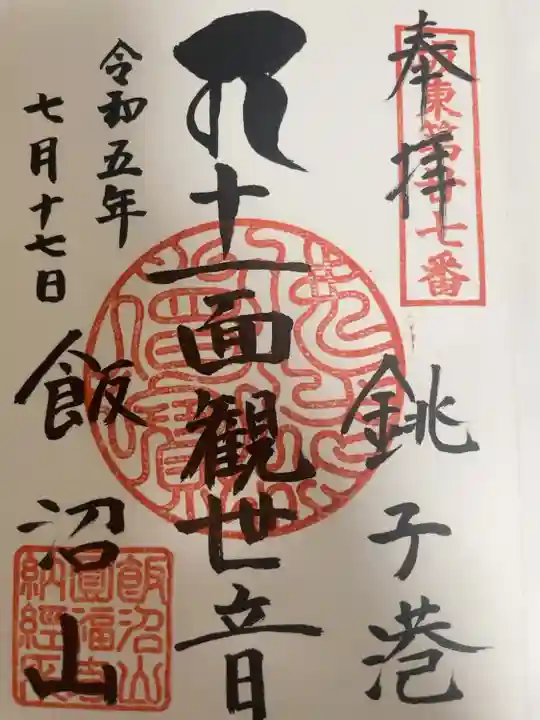 奉拝
坂東第廿七番
銚子港
十一面観世音
令和五年
七月十七日
飯沼山
飯沼山
圓福寺
納經之印